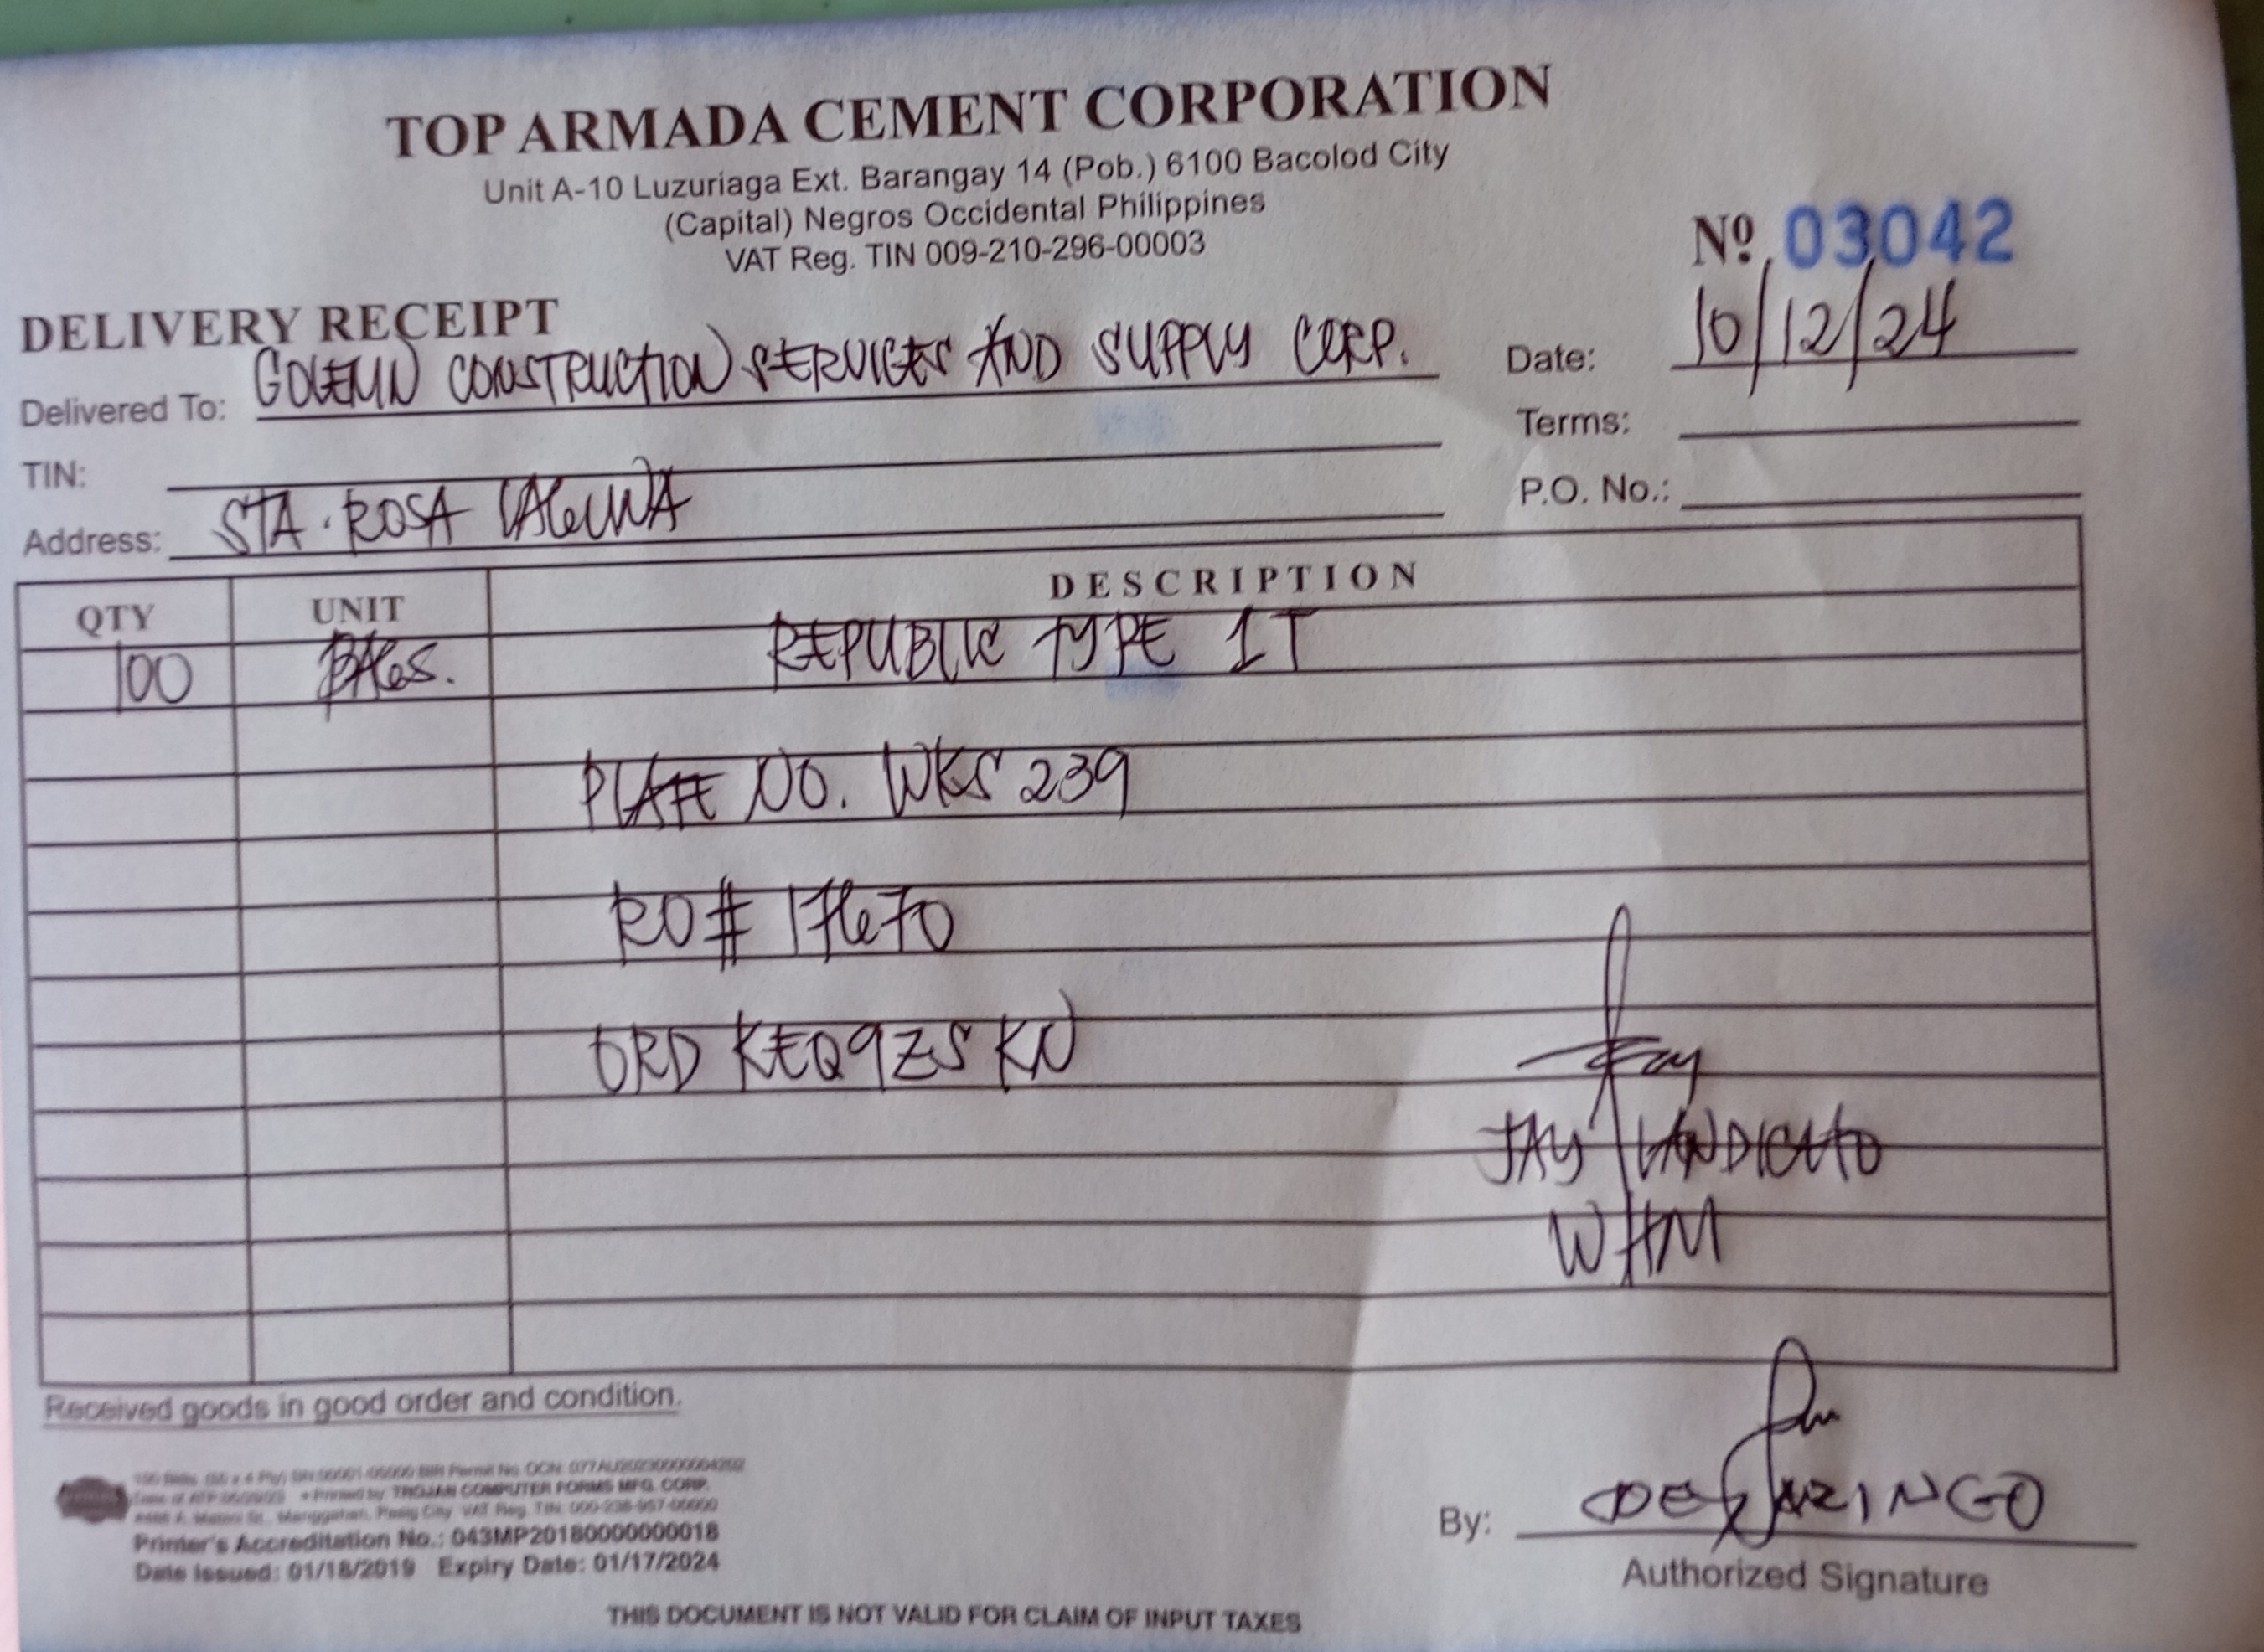 TOP ARMADA CEMENT CORPORATION
Unit A-10 Luzuriaga Ext. Barangay 14 (Pob.) 6100 Bacolod City
(Capital) Negros Occidental Philippines
VAT Reg. TIN 009-210-296-00003
Nº 03042
DELIVERY RECEIPT
Delivered To: GOLEMN CONSTRUCTION SERVICES AND SUPPLY CORP.
Date: 10/12/24
TIN:
Terms:
Address: STA. ROSA LAGUNA
P.O. No.:
QTY UNIT DESCRIPTION
100 BAGS. REPUBLIC TYPE 1T
PLATE NO. WKS 239
RO# 17670
ORD KEQ9ZSKN
JAY LANDICHO
WHM
Received goods in good order and condition.
Printed by: TROJAN COMPUTER FORMS MFG. CORP.
Printer's Accreditation No.: 043MP20180000000018
Date Issued: 01/18/2019 Expiry Date: 01/17/2024
By:
Authorized Signature
THIS DOCUMENT IS NOT VALID FOR CLAIM OF INPUT TAXES